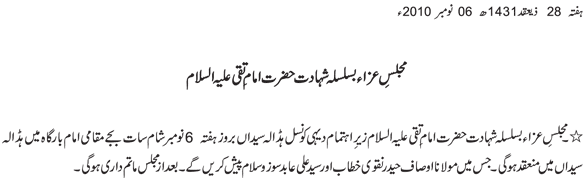 ہفتہ 28 ذیقعد1431ھ 06 نومبر 2010ء
مجلسِ عزاء بسلسلہ شہادت حضرت امام تقی علیہ السلام
☆۔مجلسِ عزاء بسلسلہ شہادت حضرت امام تقی علیہ السلام زیرِ اہتمام دیہی کونسل ہڈالہ سیداں بروز ہفتہ 6 نومبر شام سات بجے مقامی امام بارگاہ میں ہڈالہ
سیداں میں منعقد ہوگی۔جس میں مولانا اوصاف حیدر نقوی خطاب اور سید علی عابد سوز و سلام پیش کریں گے۔بعد از مجلس ماتم داری ہوگی۔